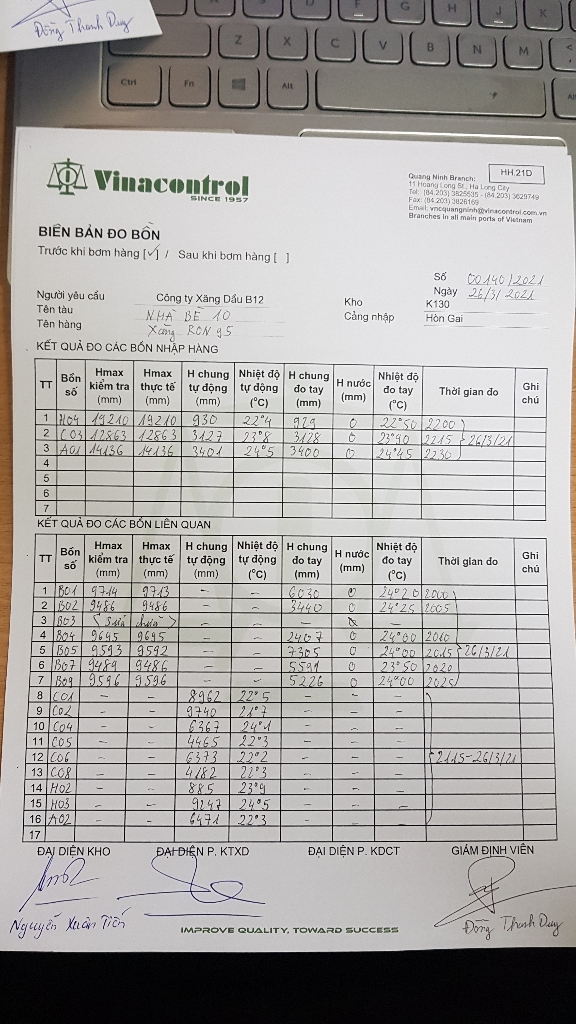 Đồng Thanh Duy
G H J K
Z X C V B N M
Ctrl Fn Alt
Vinacontrol
SINCE 1957
HH.21D
Quang Ninh Branch:
11 Hoang Long St., Ha Long City
Tel: (84.203) 3825535 - (84.203) 3629749
Fax: (84.203) 3826169
Email: vncquangninh@vinacontrol.com.vn
Branches in all main ports of Vietnam
BIÊN BẢN ĐO BỒN
Trước khi bơm hàng [✓] / Sau khi bơm hàng [ ]
Số 00140/2021
Ngày 26/3/2021
Người yêu cầu Công ty Xăng Dầu B12 Kho K130
Tên tàu NHÀ BÈ 10 Cảng nhập Hòn Gai
Tên hàng Xăng RON 95
KẾT QUẢ ĐO CÁC BỒN NHẬP HÀNG
TT Bồn số Hmax kiểm tra (mm) Hmax thực tế (mm) H chung tự động (mm) Nhiệt độ tự động (°C) H chung đo tay (mm) H nước (mm) Nhiệt độ đo tay (°C) Thời gian đo Ghi chú
1 H04 19210 19210 930 22°4 929 0 22°50 2200
2 C03 12863 12863 3127 23°8 3128 0 23°90 2215 26/3/21
3 A01 14136 14136 3401 24°5 3400 0 24°45 2230
4
5
6
7
KẾT QUẢ ĐO CÁC BỒN LIÊN QUAN
TT Bồn số Hmax kiểm tra (mm) Hmax thực tế (mm) H chung tự động (mm) Nhiệt độ tự động (°C) H chung đo tay (mm) H nước (mm) Nhiệt độ đo tay (°C) Thời gian đo Ghi chú
1 B01 9714 9713 - - 6030 0 24°20 2000
2 B02 9486 9486 - - 3440 0 24°25 2005
3 B03 < Sửa chữa > - - - - -
4 B04 9695 9695 - - 2407 0 24°00 2010
5 B05 9593 9592 - - 7305 0 24°00 2015 26/3/21
6 B07 9489 9486 - - 5591 0 23°50 2020
7 B09 9596 9596 - - 5226 0 24°00 2025
8 C01 - - 8962 22°5 - - -
9 C02 - - 9740 21°7 - - -
10 C04 - - 6367 24°1 - - -
11 C05 - - 4465 22°3 - - -
12 C06 - - 6373 22°2 - - - 2115-26/3/21
13 C08 - - 4182 22°3 - - -
14 H02 - - 885 23°9 - - -
15 H03 - - 9247 24°5 - - -
16 A02 - - 6471 22°3 - - -
17
ĐẠI DIỆN KHO ĐẠI DIỆN P. KTXD ĐẠI DIỆN P. KDCT GIÁM ĐỊNH VIÊN
Nguyễn Xuân Tiến
Đồng Thanh Duy
IMPROVE QUALITY, TOWARD SUCCESS